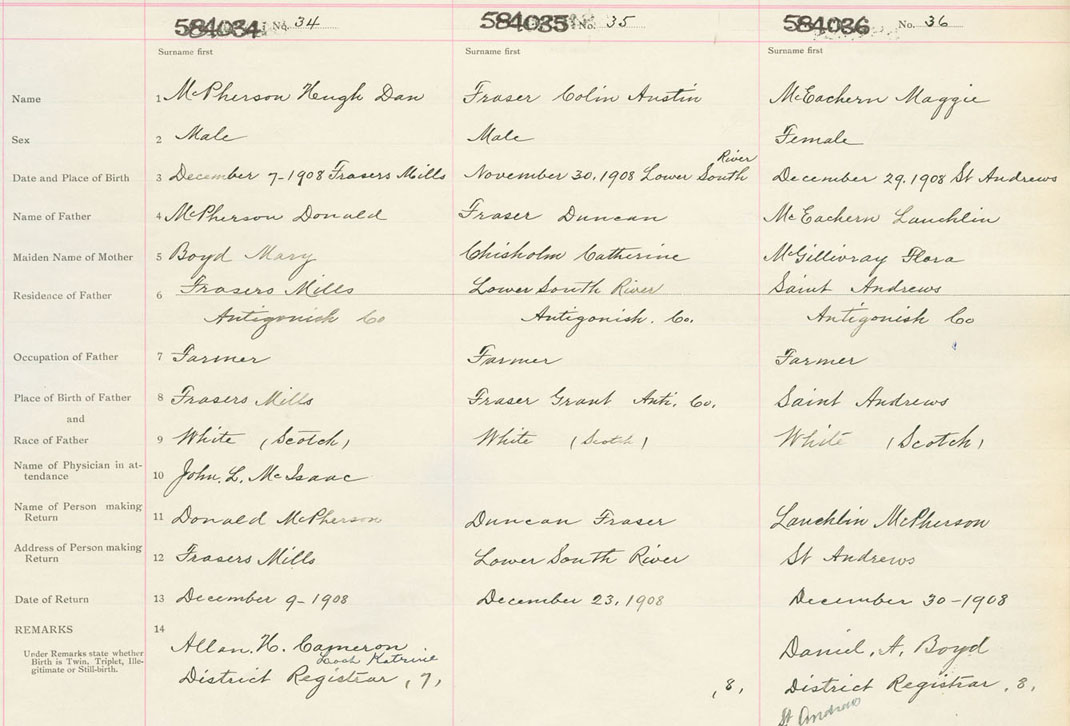 584034 No. 34 584035 No. 35 584036 No. 36
Surname first Surname first Surname first
Name 1 McPherson Hugh Dan Fraser Colin Austin McEachern Maggie
Sex 2 Male Male Female
River
Date and Place of Birth 3 December 7-1908 Frasers Mills November 30, 1908 Lower South December 29, 1908 St Andrews
Name of Father 4 McPherson Donald Fraser Duncan McEachern Lauchlin
Maiden Name of Mother 5 Boyd Mary Chisholm Catherine McGillivray Flora
Residence of Father 6 Frasers Mills Lower South River Saint Andrews
Antigonish Co Antigonish. Co. Antigonish Co
Occupation of Father 7 Farmer Farmer Farmer
Place of Birth of Father 8 Frasers Mills Fraser Grant Anti. Co. Saint Andrews
and
Race of Father 9 White (Scotch) White (Scotch) White (Scotch)
Name of Physician in at-
tendance 10 John. L. McIsaac
Name of Person making
Return 11 Donald McPherson Duncan Fraser Lauchlin McPherson
Address of Person making
Return 12 Frasers Mills Lower South River St Andrews
Date of Return 13 December 9-1908 December 23, 1908 December 30-1908
REMARKS 14
Under Remarks state whether
Birth is Twin, Triplet, Ille-
gitimate or Still-birth.
Allan. H. Cameron Daniel, A, Boyd
Loch Katrine
District Registrar (7) (8) District Registrar (8)
St Andrews